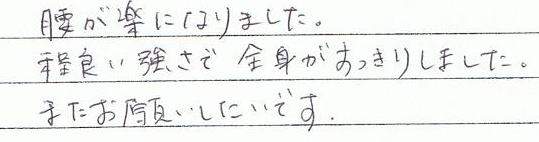 腰が楽になりました。
程良い強さで全身がすっきりしました。
またお願いしたいです.